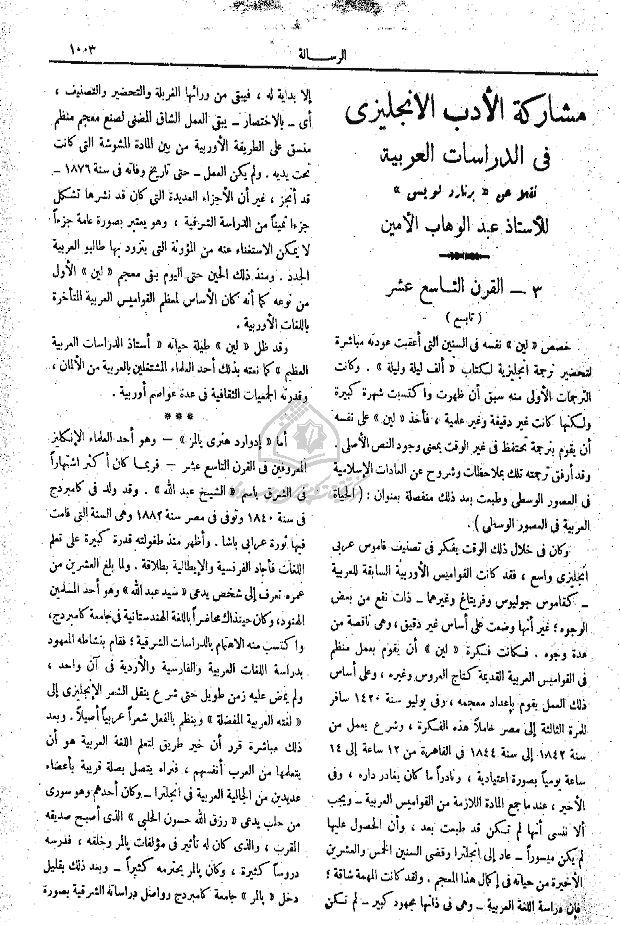 الرسالة
١٠٠٣
مشاركة الأدب الإنجليزى
فى الدراسات العربية
نقلا عن « برنارد لويس »
للأستاذ عبد الوهاب الأمين
٣ — القرن التاسع عشر
( تابع )
خصص « لين » نفسه فى السنين التى أعقبت عودته مباشرة
لتحضير ترجمة انجليزية لكتاب « ألف ليلة وليلة » . وكانت
الترجمات الأولى منه سبق أن ظهرت واكتسبت شهرة كبيرة
ولكنها كانت غير دقيقة وغير علمية ، فأخذ « لين » على نفسه
أن يقوم بترجمة تحتفظ فى غير الوقت بمعنى وجود النص الأصلى
وقد أرفق ترجمته تلك بملاحظات وشروح عن العادات الإسلامية
فى العصور الوسطى وطبعت بعد ذلك منفصلة بعنوان : ( الحياة
العربية فى العصور الوسطى ) .
وكان فى خلال ذلك الوقت يفكر فى تصنيف قاموس عربى
انجليزى واسع ، فقد كانت القواميس الأوربية السابقة للعربية
— كقاموس جوليوس وفريتاغ وغيرهما — ذات نفع من بعض
الوجوه ؛ غير أنها وضعت على أساس غير دقيق ، وهى ناقصة من
عدة وجوه . فكانت فكرة « لين » أن يقوم بعمل منظم
فى القواميس العربية القديمة كتاج العروس وغيره ، وعلى أساس
ذلك العمل يقوم بإعداد معجمه ، وفى يوليو سنة ١٤٢٠ سافر
للمرة الثالثة إلى مصر حاملاً هذه الفكرة ، وشرع يعمل من
سنة ١٨٤٢ إلى سنة ١٨٤٤ فى القاهرة من ١٢ ساعة إلى ١٤
ساعة يومياً بصورة اعتيادية ، ونادراً ما كان يغادر داره ، وفى
الأخير ، عند ما جمع المادة اللازمة من القواميس العربية — ويجب
ألا ننسى أنها لم تكن قد طبعت بعد ، وأن الحصول عليها
لم يكن ميسوراً — عاد إلى انجلترا وقضى السنين الخمس والعشرين
الأخيرة من حياته فى إكمال هذا المعجم . ولقد كانت المهمة شاقة ؛
فإن دراسة اللغة العربية — وهى فى ذاتها مجهود كبير — لم تكن
إلا بداية له ، فيبقى من ورائها الغربلة والتحضير والتصنيف ،
أى — بالاختصار — يبقى العمل الشاق المضنى لصنع معجم منظم
منسق على الطريقة الأوربية من بين المادة المشوشة التى كانت
تحت يديه . ولم يكن العمل — حتى تاريخ وفاته فى سنة ١٨٧٦ —
قد أنجز ، غير أن الأجزاء العديدة التى كان قد نشرها تشكل
جزءاً ثميناً من الدراسة الشرقية ، وهو يعتبر بصورة عامة جزءاً
لا يمكن الاستغناء عنه من المؤونة التى يتزود بها طالبو العربية
الجدد . ومنذ ذلك الحين حتى اليوم بقى معجم « لين » الأول
من نوعه كما أنه كان الأساس لمعظم القواميس العربية المتأخرة
باللغات الأوربية .
وقد ظل « لين » طيلة حياته « أستاذ الدراسات العربية
العظيم » كما نعته بذلك أحد العلماء المشتغلين بالعربية من الألمان ،
وقدرته الجمعيات الثقافية فى عدة عواصم أوربية .
***
أما « إدوارد هنرى بالمر » — وهو أحد العلماء الإنكليز
المعروفين فى القرن التاسع عشر — فربما كان أكثر اشتهاراً
فى الشرق باسم « الشيخ عبد الله » . وقد ولد فى كامبردج
فى سنة ١٨٤٠ وتوفى فى مصر سنة ١٨٨٢ وهى السنة التى قامت
فيها ثورة عرابى باشا . وأظهر منذ طفولته قدرة كبيرة على تعلم
اللغات فأجاد الفرنسية والإيطالية بطلاقة . ولما بلغ العشرين من
عمره تعرف إلى شخص يدعى « سَيد عبد الله » وهو أحد المسلمين
الهنود ، وكان حينذاك محاضراً باللغة الهندستانية فى جامعة كامبردج ،
واكتسب منه الاهتمام بالدراسات الشرقية ؛ فقام بنشاطه المعهود
بدراسة اللغات العربية والفارسية والأردية فى آن واحد ،
ولم يمض عليه زمن طويل حتى شرع ينقل الشعر الإنجليزى إلى
« لغته العربية المفضلة » وينظم بالفعل شعراً عربياً أصيلاً . وبعد
ذلك مباشرة قرر أن خير طريق لتعلم اللغة العربية هو أن
يتعلمها من العرب أنفسهم ، فنراه يتصل بصلة قريبة بأعضاء
عديدين من الجالية العربية فى انجلترا — وكان أحدهم وهو سورى
من حلب يدعى « رزق الله حسون الحلبى » الذى أصبح صديقه
المقرب ، والذى كان له تأثير فى مؤلفات بالمر وخلقه ، فدرسه
دروساً كثيرة ، وكان بالمر يحترمه كثيراً — وبعد ذلك بقليل
دخل « بالمر » جامعة كامبردج وواصل دراساته الشرقية بصورة